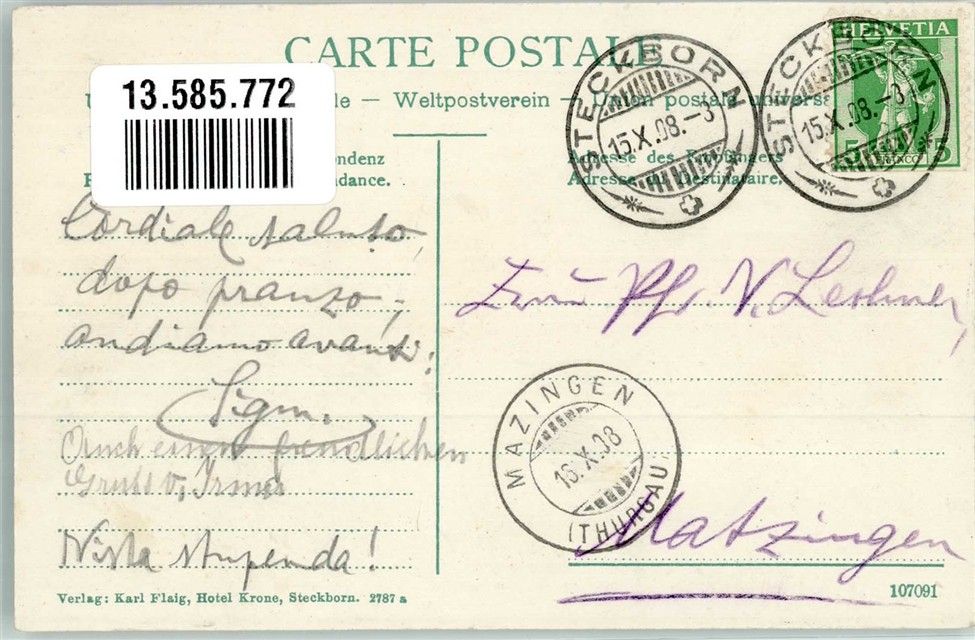 CARTE POSTALE
13.585.772
le — Weltpostverein — Union postale universe
endenz
dance.
Adresse des Empfängers
Adresse du Destinataire.
STECKBORN
15.X.08.-3
STECKBORN
15.X.08.-3
HELVETIA
5 5
Cordiale saluto,
dopo pranzo,
andiamo avanti!
Sigm.
Auch einen freundlichen
Gruss v. Irma
Vista stupenda!
Pfr. V.
MAZINGEN
16.X.08
(THURGAU)
Matzingen
Verlag: Karl Flaig, Hotel Krone, Steckborn. 2787 a
107091